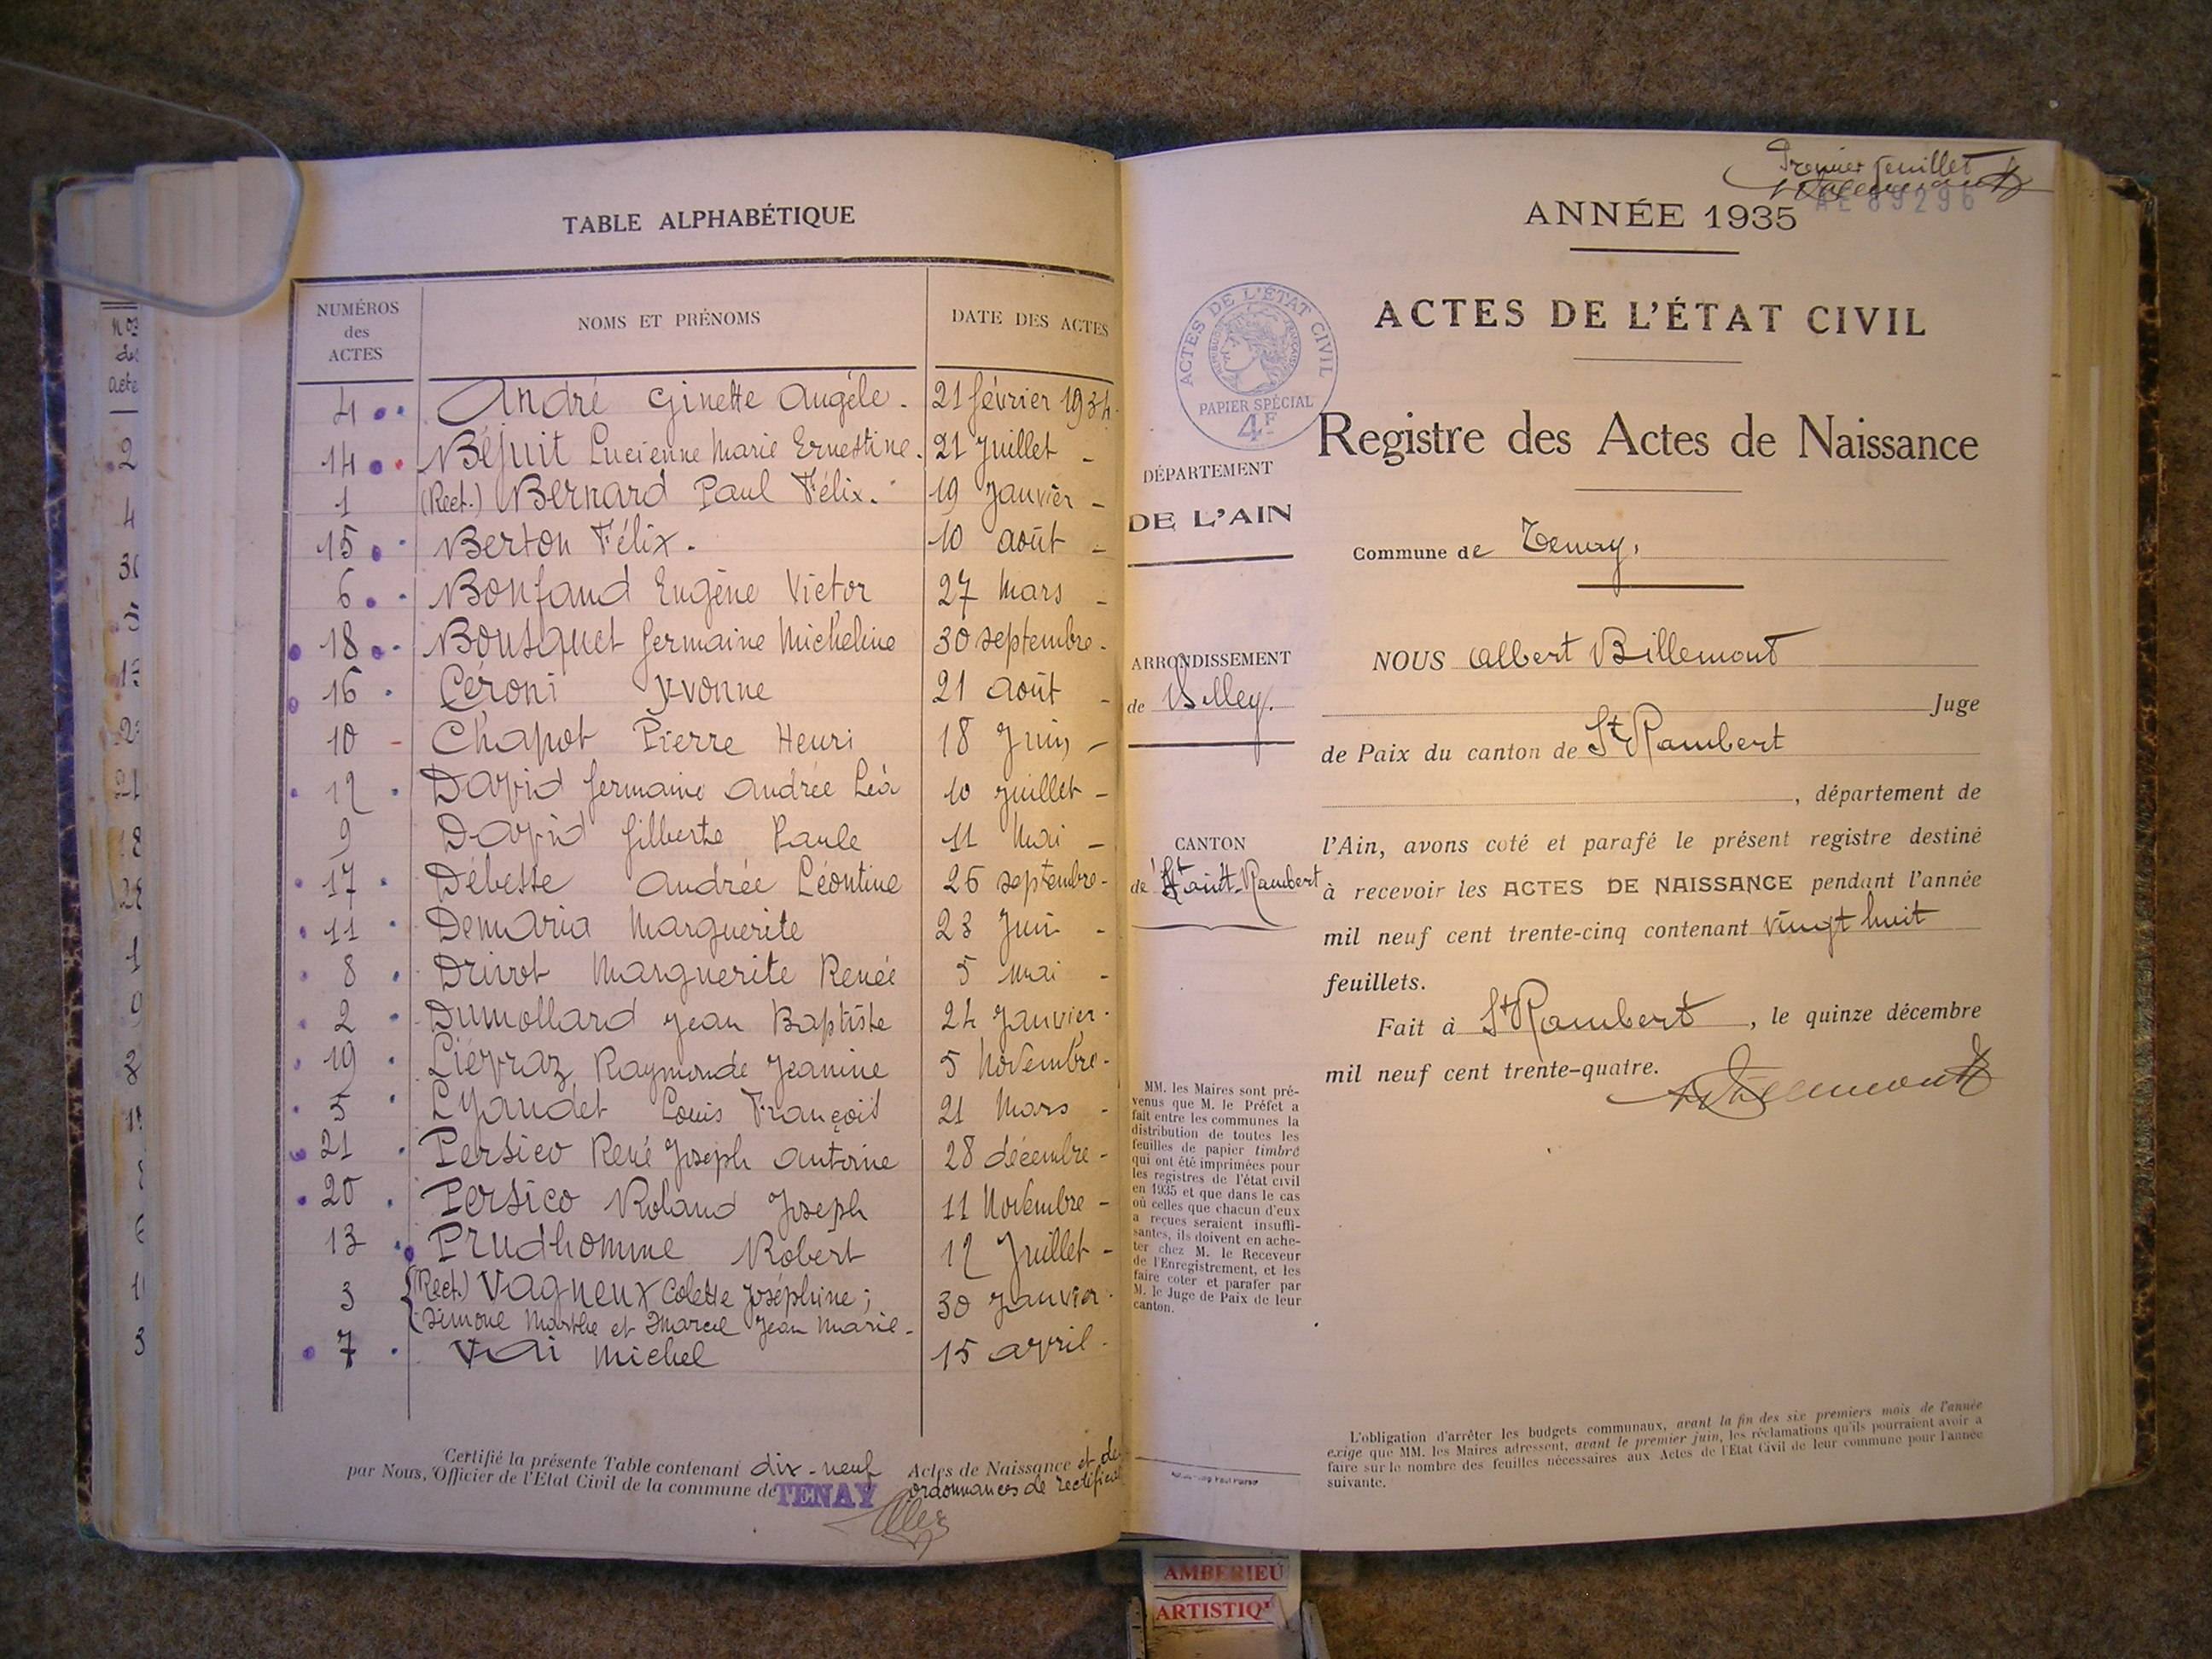 TABLE ALPHABÉTIQUE
NUMÉROS des ACTES NOMS ET PRÉNOMS DATE DES ACTES
4 André Ginette Angèle. 21 février 1934.
14 Béjuit Lucienne Marie Ernestine. 21 Juillet -
1 (Rect.) Bernard Paul Félix. 19 Janvier -
15 Berton Félix. 10 août -
6 Bonfand Eugène Victor 27 Mars -
18 Bousquet Germaine Micheline 30 septembre -
16 Céroni Yvonne 21 août -
10 Chapot Pierre Henri 18 Juin -
12 David Germaine Andrée Léa 10 juillet -
9 David Gilberte Paule 11 Mai -
17 Débette Andrée Léontine 26 septembre -
11 Demaria Marguerite 23 Juin -
8 Drivot Marguerite Renée 5 Mai -
2 Dumollard Jean Baptiste 24 Janvier -
19 Liévraz Raymonde Jeanine 5 Novembre -
5 Lyaudet Louis François 21 Mars -
21 Persico René Joseph Antoine 28 décembre -
20 Persico Roland Joseph 11 Novembre -
13 Prudhomme Robert 12 Juillet -
3 (Rect.) Vagneux Colette Joséphine; 30 Janvier -
Simone Marthe et Marcel Jean Marie -
7 Vai Michel 15 avril -
Certifié la présente Table contenant dix-neuf Actes de Naissance et de
par Nous, Officier de l'Etat Civil de la commune de TENAY ordonnances de
Premier feuillet
AE 89296
ANNÉE 1935
ACTES DE L'ÉTAT CIVIL
PAPIER SPÉCIAL
4F
ACTES DE L'ÉTAT CIVIL
Registre des Actes de Naissance
DÉPARTEMENT
DE L'AIN
Commune de Tenay.
ARRONDISSEMENT
de Belley.
CANTON
de Saint-Rambert
NOUS Albert Billemont
Juge
de Paix du canton de St Rambert
, département de
l'Ain, avons coté et parafé le présent registre destiné
à recevoir les ACTES DE NAISSANCE pendant l'année
mil neuf cent trente-cinq contenant vingt huit
feuillets.
Fait à St Rambert, le quinze décembre
mil neuf cent trente-quatre.
MM. les Maires sont pré-
venus que M. le Préfet a
fait entre les communes la
distribution de toutes les
feuilles de papier timbré
qui ont été imprimées pour
les registres de l'état civil
en 1935 et que dans le cas
où celles que chacun d'eux
a reçues seraient insuffi-
santes, ils doivent en ache-
ter chez M. le Receveur
de l'Enregistrement, et les
faire coter et parafer par
M. le Juge de Paix de leur
canton.
L'obligation d'arrêter les budgets communaux, avant la fin des six premiers mois de l'année
exige que MM. les Maires adressent, avant le premier juin, les réclamations qu'ils pourraient avoir à
faire sur le nombre des feuilles nécessaires aux Actes de l'Etat Civil de leur commune pour l'année
suivante.
AMBERIEU
ARTISTIQ